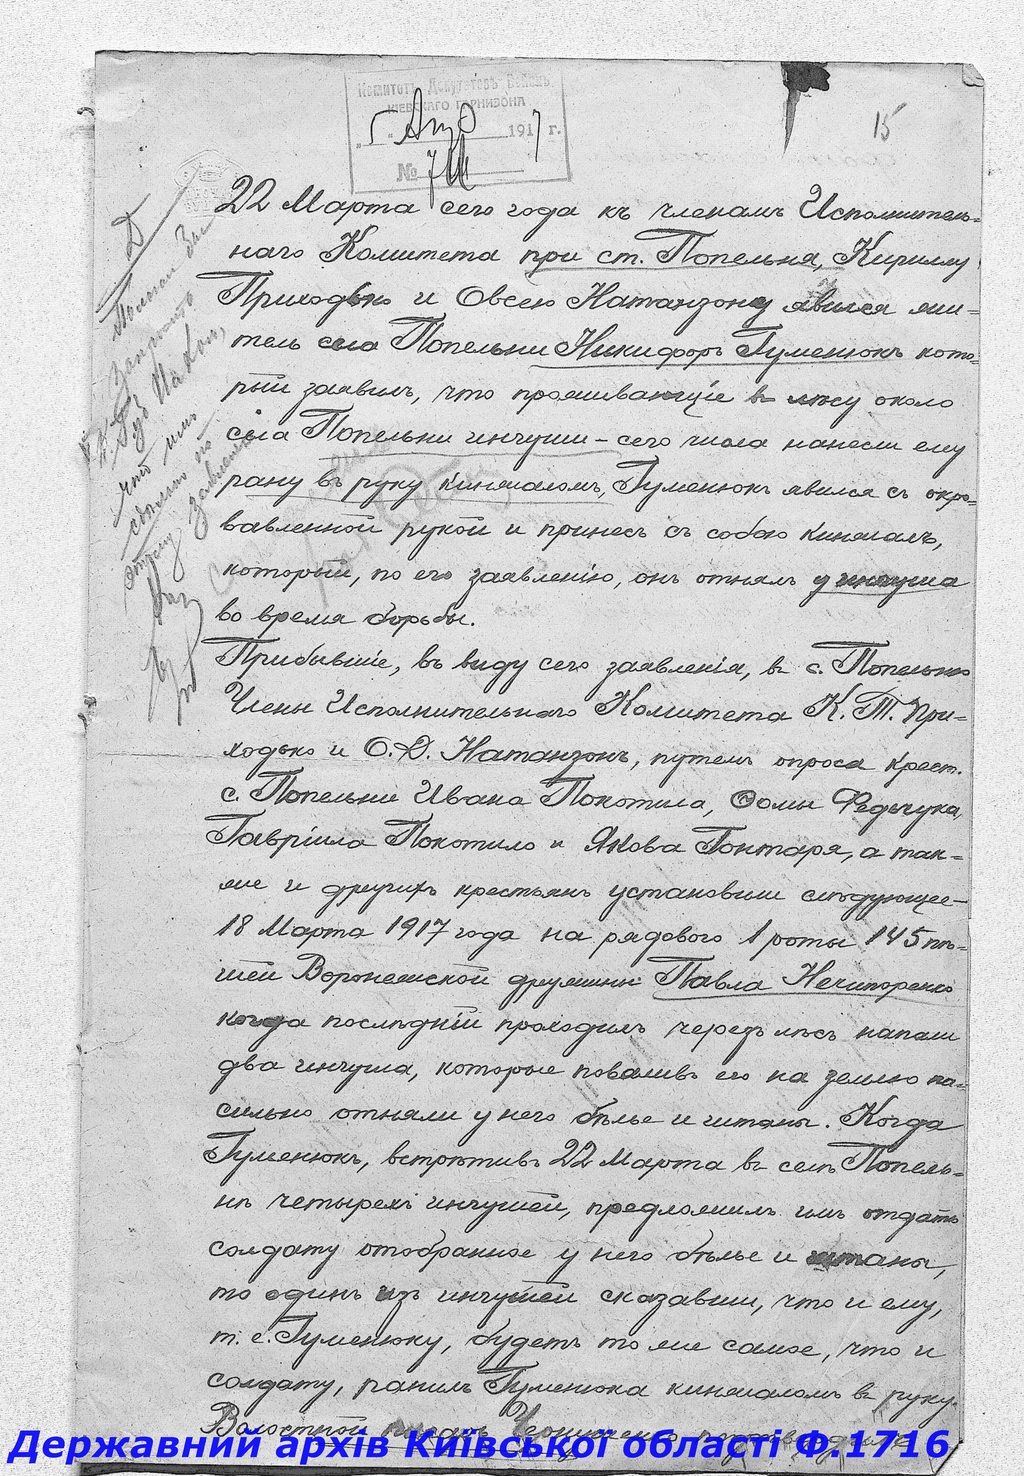 Комитетъ Депутатовъ Войскъ
КІЕВСКАГО ГАРНИЗОНА
„5" Апр 1917 г.
№
15
22 Марта сего года къ членамъ Исполнитель=
наго Комитета при ст. Попельня, Кириллу
Приходько и Овсею Натанзону явился жи-
тель села Попельни Никифоръ Гуменюкъ кото-
рый заявилъ, что проживающіе въ лѣсу около
села Попельни ингуши - сего числа нанесли ему
рану въ руку кинжаломъ, Гуменюкъ явился съ окро-
вавленной рукой и принесъ съ собою кинжалъ,
который, по его заявленію, онъ отнялъ у ингуша
во время борьбы.
Прибывшіе, въ виду сего заявленія, въ с. Попельню
Члены Исполнительнаго Комитета К. Т. При-
ходько и О. Д. Натанзонъ, путемъ опроса крест.
с. Попельни Ивана Покотила, Ѳомы Федьчука,
Гавріила Покотило и Якова Гонтаря, а так-
же и другихъ крестьянъ установили слѣдующее-
18 Марта 1917 года на рядового 1 роты 145 пѣ-
шей Воронежской дружины Павла Нечипоренко
когда послѣдній проходилъ черезъ лѣсъ напали
два ингуша, которые поваливъ его на землю на-
сильно отняли у него бѣлье и штаны. Когда
Гуменюкъ, встрѣтивъ 22 Марта въ селѣ Попель-
нѣ четырехъ ингушей, предложилъ имъ отдать
солдату отобранное у него бѣлье и штаны,
то одинъ изъ ингушей сказавши, что и ему,
т. е. Гуменюку, будетъ то же самое, что и
солдату, ранилъ Гуменюка кинжаломъ въ руку.
Волостной писарь
Державний архів Київської області Ф.1716